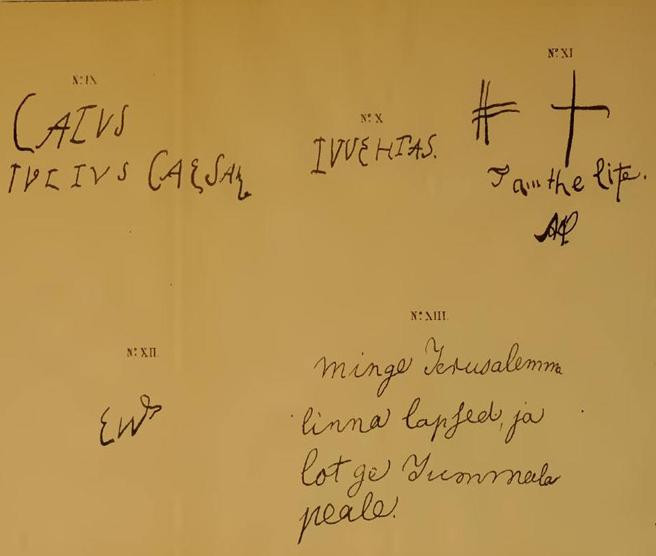 Nº IX
CAIVS
IVLIVS CAESAR
Nº X
IVVEHTAS.
Nº XI
I am the life.
Nº XII
Nº XIII
minge Jerusalemma
linna lapsed, ja
lotge Jummala
peale.